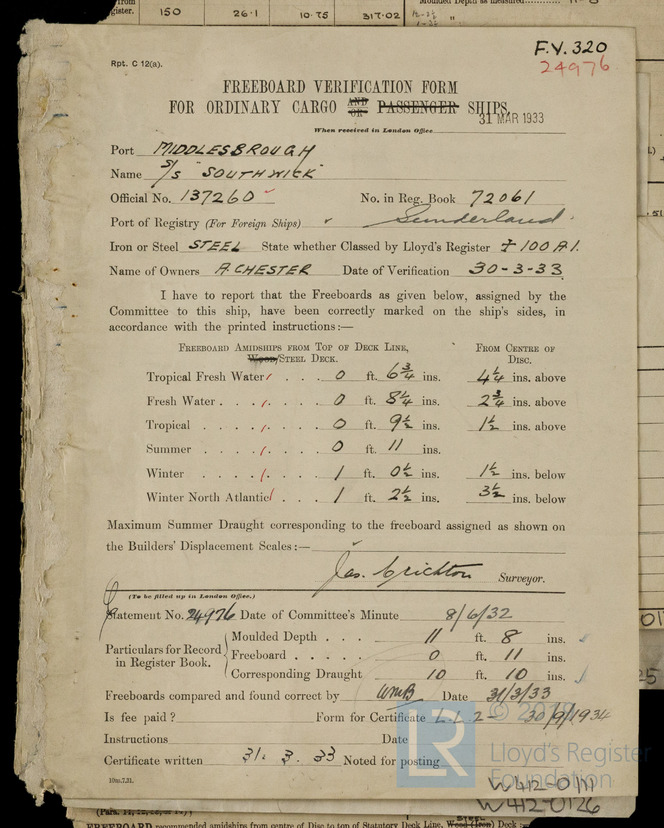 150 26·1 10·75 317·02
F.V. 320
24976
Rpt. C 12(a).
FREEBOARD VERIFICATION FORM
FOR ORDINARY CARGO AND OR PASSENGER SHIPS.
31 MAR 1933
When received in London Office
Port MIDDLESBROUGH
Name S/S "SOUTHWICK"
Official No. 137260 No. in Reg. Book 72061
Port of Registry (For Foreign Ships) Sunderland.
Iron or Steel STEEL State whether Classed by Lloyd's Register ‡ 100 A1.
Name of Owners A CHESTER Date of Verification 30-3-33
I have to report that the Freeboards as given below, assigned by the
Committee to this ship, have been correctly marked on the ship's sides, in
accordance with the printed instructions:—
FREEBOARD AMIDSHIPS FROM TOP OF DECK LINE, FROM CENTRE OF
WOOD/STEEL DECK. DISC.
Tropical Fresh Water . . . 0 ft. 6¾ ins. 4¼ ins. above
Fresh Water . . . . . 0 ft. 8¼ ins. 2¾ ins. above
Tropical . . . . . . 0 ft. 9½ ins. 1½ ins. above
Summer . . . . . . 0 ft. 11 ins.
Winter . . . . . . 1 ft. 0½ ins. 1½ ins. below
Winter North Atlantic . . . 1 ft. 2½ ins. 3½ ins. below
Maximum Summer Draught corresponding to the freeboard assigned as shown on
the Builders' Displacement Scales:—
Jas. Crichton Surveyor.
(To be filled up in London Office.)
Statement No. 24976 Date of Committee's Minute 8/6/32
Particulars for Record in Register Book. Moulded Depth . . . 11 ft. 8 ins.
Freeboard . . . . . 0 ft. 11 ins.
Corresponding Draught 10 ft. 10 ins.
Freeboards compared and found correct by WMB Date 31/3/33
Is fee paid? Form for Certificate L.L.2- 30/9/1934
Instructions Date
Certificate written 31. 3. 33 Noted for posting
10m.7.31.
LR © 20
Lloyd's Register
Foundation
W412-0111
W412-0126
FREEBOARD recommended amidships from centre of Disc to top of Statutory Deck Line, Wood (Iron) Deck:—
STEEL